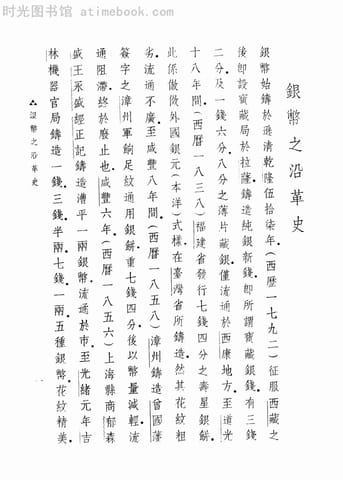 时光图书馆 atimebook.com
銀幣之沿革史
銀幣始鑄於遜清乾隆伍拾柒年(西歷一七九二)征服西藏之
後即設寶藏局於拉薩鑄造純銀新錢即所謂寶藏銀錢有三錢
二分及一錢六分八分之薄片藏銀僅流通於西康地方至道光
十八年間(西曆一八三八)福建省發行七錢四分之壽星銀餅
此係倣做外國銀元(本洋)式樣在臺灣省所鑄造然其花紋粗
劣流通不廣至咸豐八年間(西曆一八五八)漳州鑄造曾國藩
簽字之漳州軍餉足紋通用銀餅重七錢四分後以幣量減輕流
通阻滯終於廢止也咸豐六年(西曆一八五六)上海縣商郁森
盛王永盛經正記鑄造漕平一兩銀幣流通於市至光緒元年吉
林機器官局鑄造一錢三錢半兩七錢一兩五種銀幣花紋精美
銀幣之沿革史
一